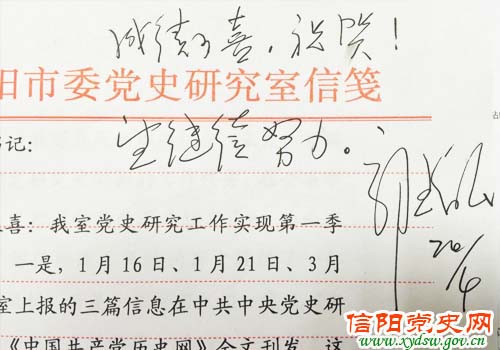 成绩可喜，祝贺！
阳市委党史研究室信笺
望继续努力。
书记：
喜：我室党史研究工作实现第一季
一是，1月16日、1月21日、3月
室上报的三篇信息在中共中央党史研
《中国共产党历史网》全文刊发，这
20/4
信阳党史网
www.xydsw.gov.cn